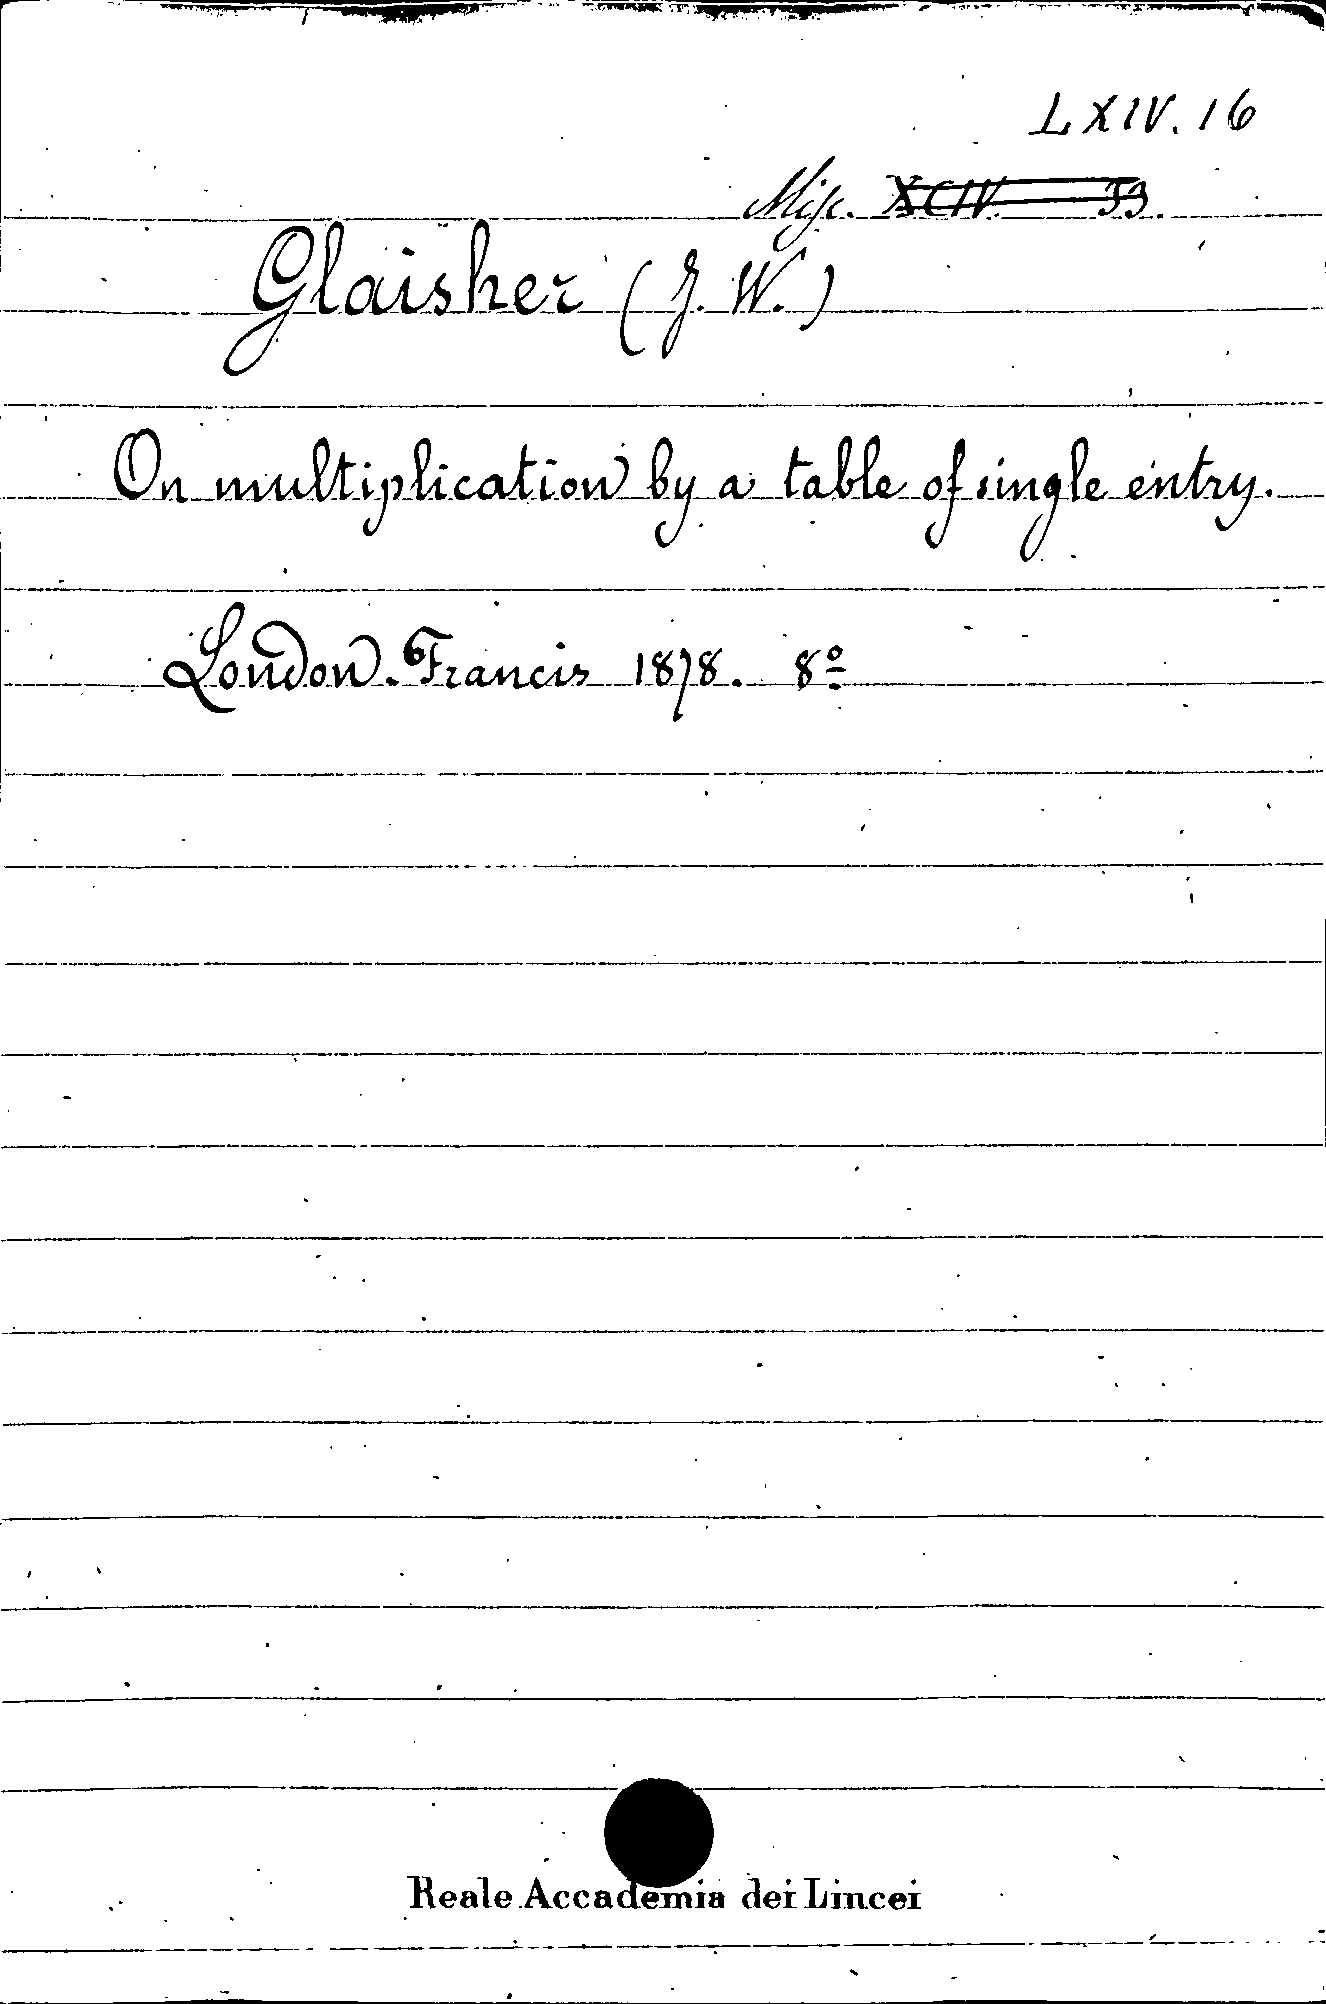 LXIV. 16
Misc. XCIV. 53.
Glaisher (J. W.)
On multiplication by a table of single entry.
London. Francis 1878. 8º
Reale Accademia dei Lincei